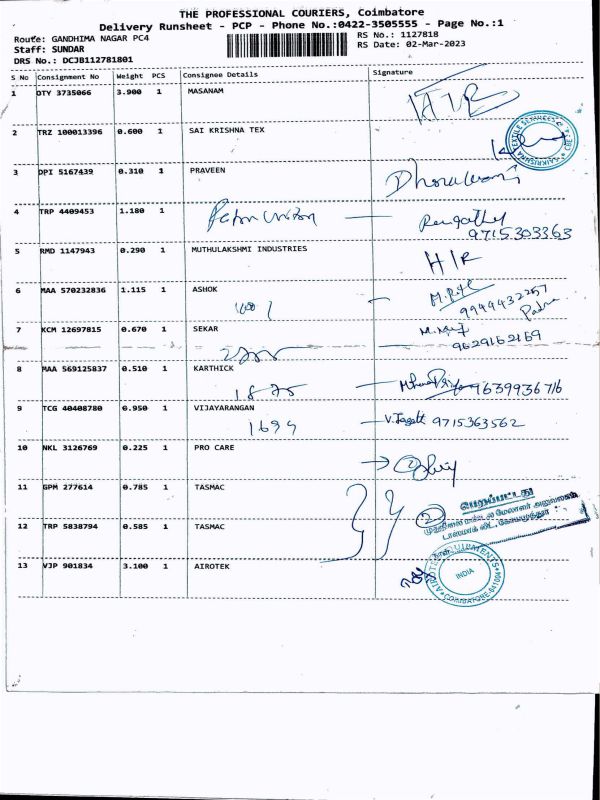 THE PROFESSIONAL COURIERS, Coimbatore
Delivery Runsheet - PCP - Phone No.:0422-3505555 - Page No.:1
Route: GANDHIMA NAGAR PC4
RS No.: 1127818
Staff: SUNDAR
RS Date: 02-Mar-2023
DRS No.: DCJB112781801
S No Consignment No Weight PCS Consignee Details Signature
1 OTY 3735066 3.900 1 MASANAM
2 TRZ 100013396 0.600 1 SAI KRISHNA TEX
3 DPI 5167439 0.310 1 PRAVEEN
4 TRP 4409453 1.180 1
9715303363
5 RMD 1147943 0.290 1 MUTHULAKSHMI INDUSTRIES H/R
6 MAA 570232836 1.115 1 ASHOK
9994432257
7 KCM 12697815 0.670 1 SEKAR
9629162169
8 MAA 569125837 0.510 1 KARTHICK
1875 9639936716
9 TCG 40408780 0.950 1 VIJAYARANGAN
1694 9715363562
10 NKL 3126769 0.225 1 PRO CARE
11 GPM 277614 0.785 1 TASMAC
பெறப்பட்டது
12 TRP 5838794 0.585 1 TASMAC
13 VJP 901834 3.100 1 AIROTEK
INDIA